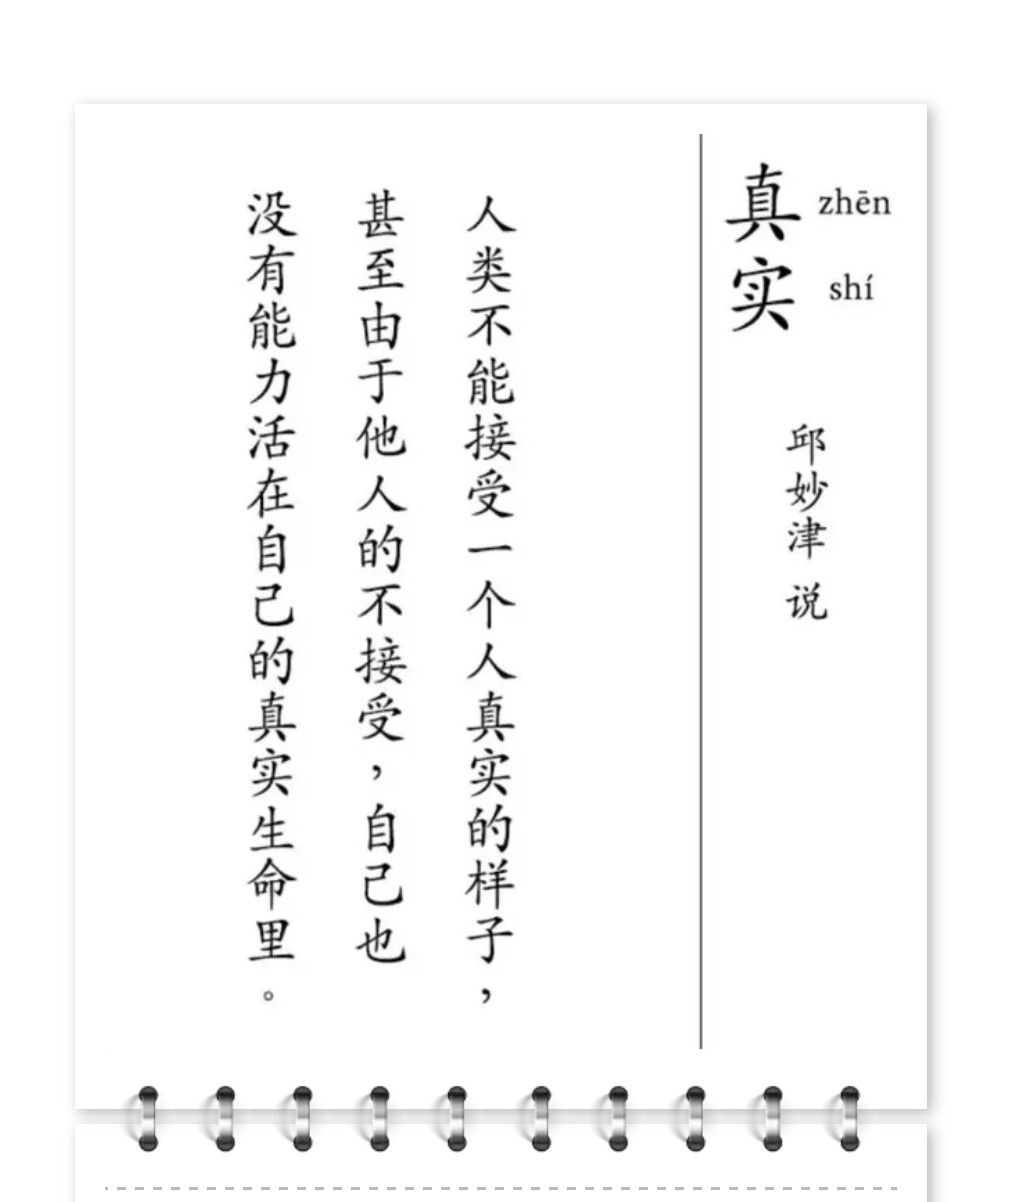 真实
zhēn
shí
邱妙津 说
人类不能接受一个人真实的样子，
甚至由于他人的不接受，自己也
没有能力活在自己的真实生命里。